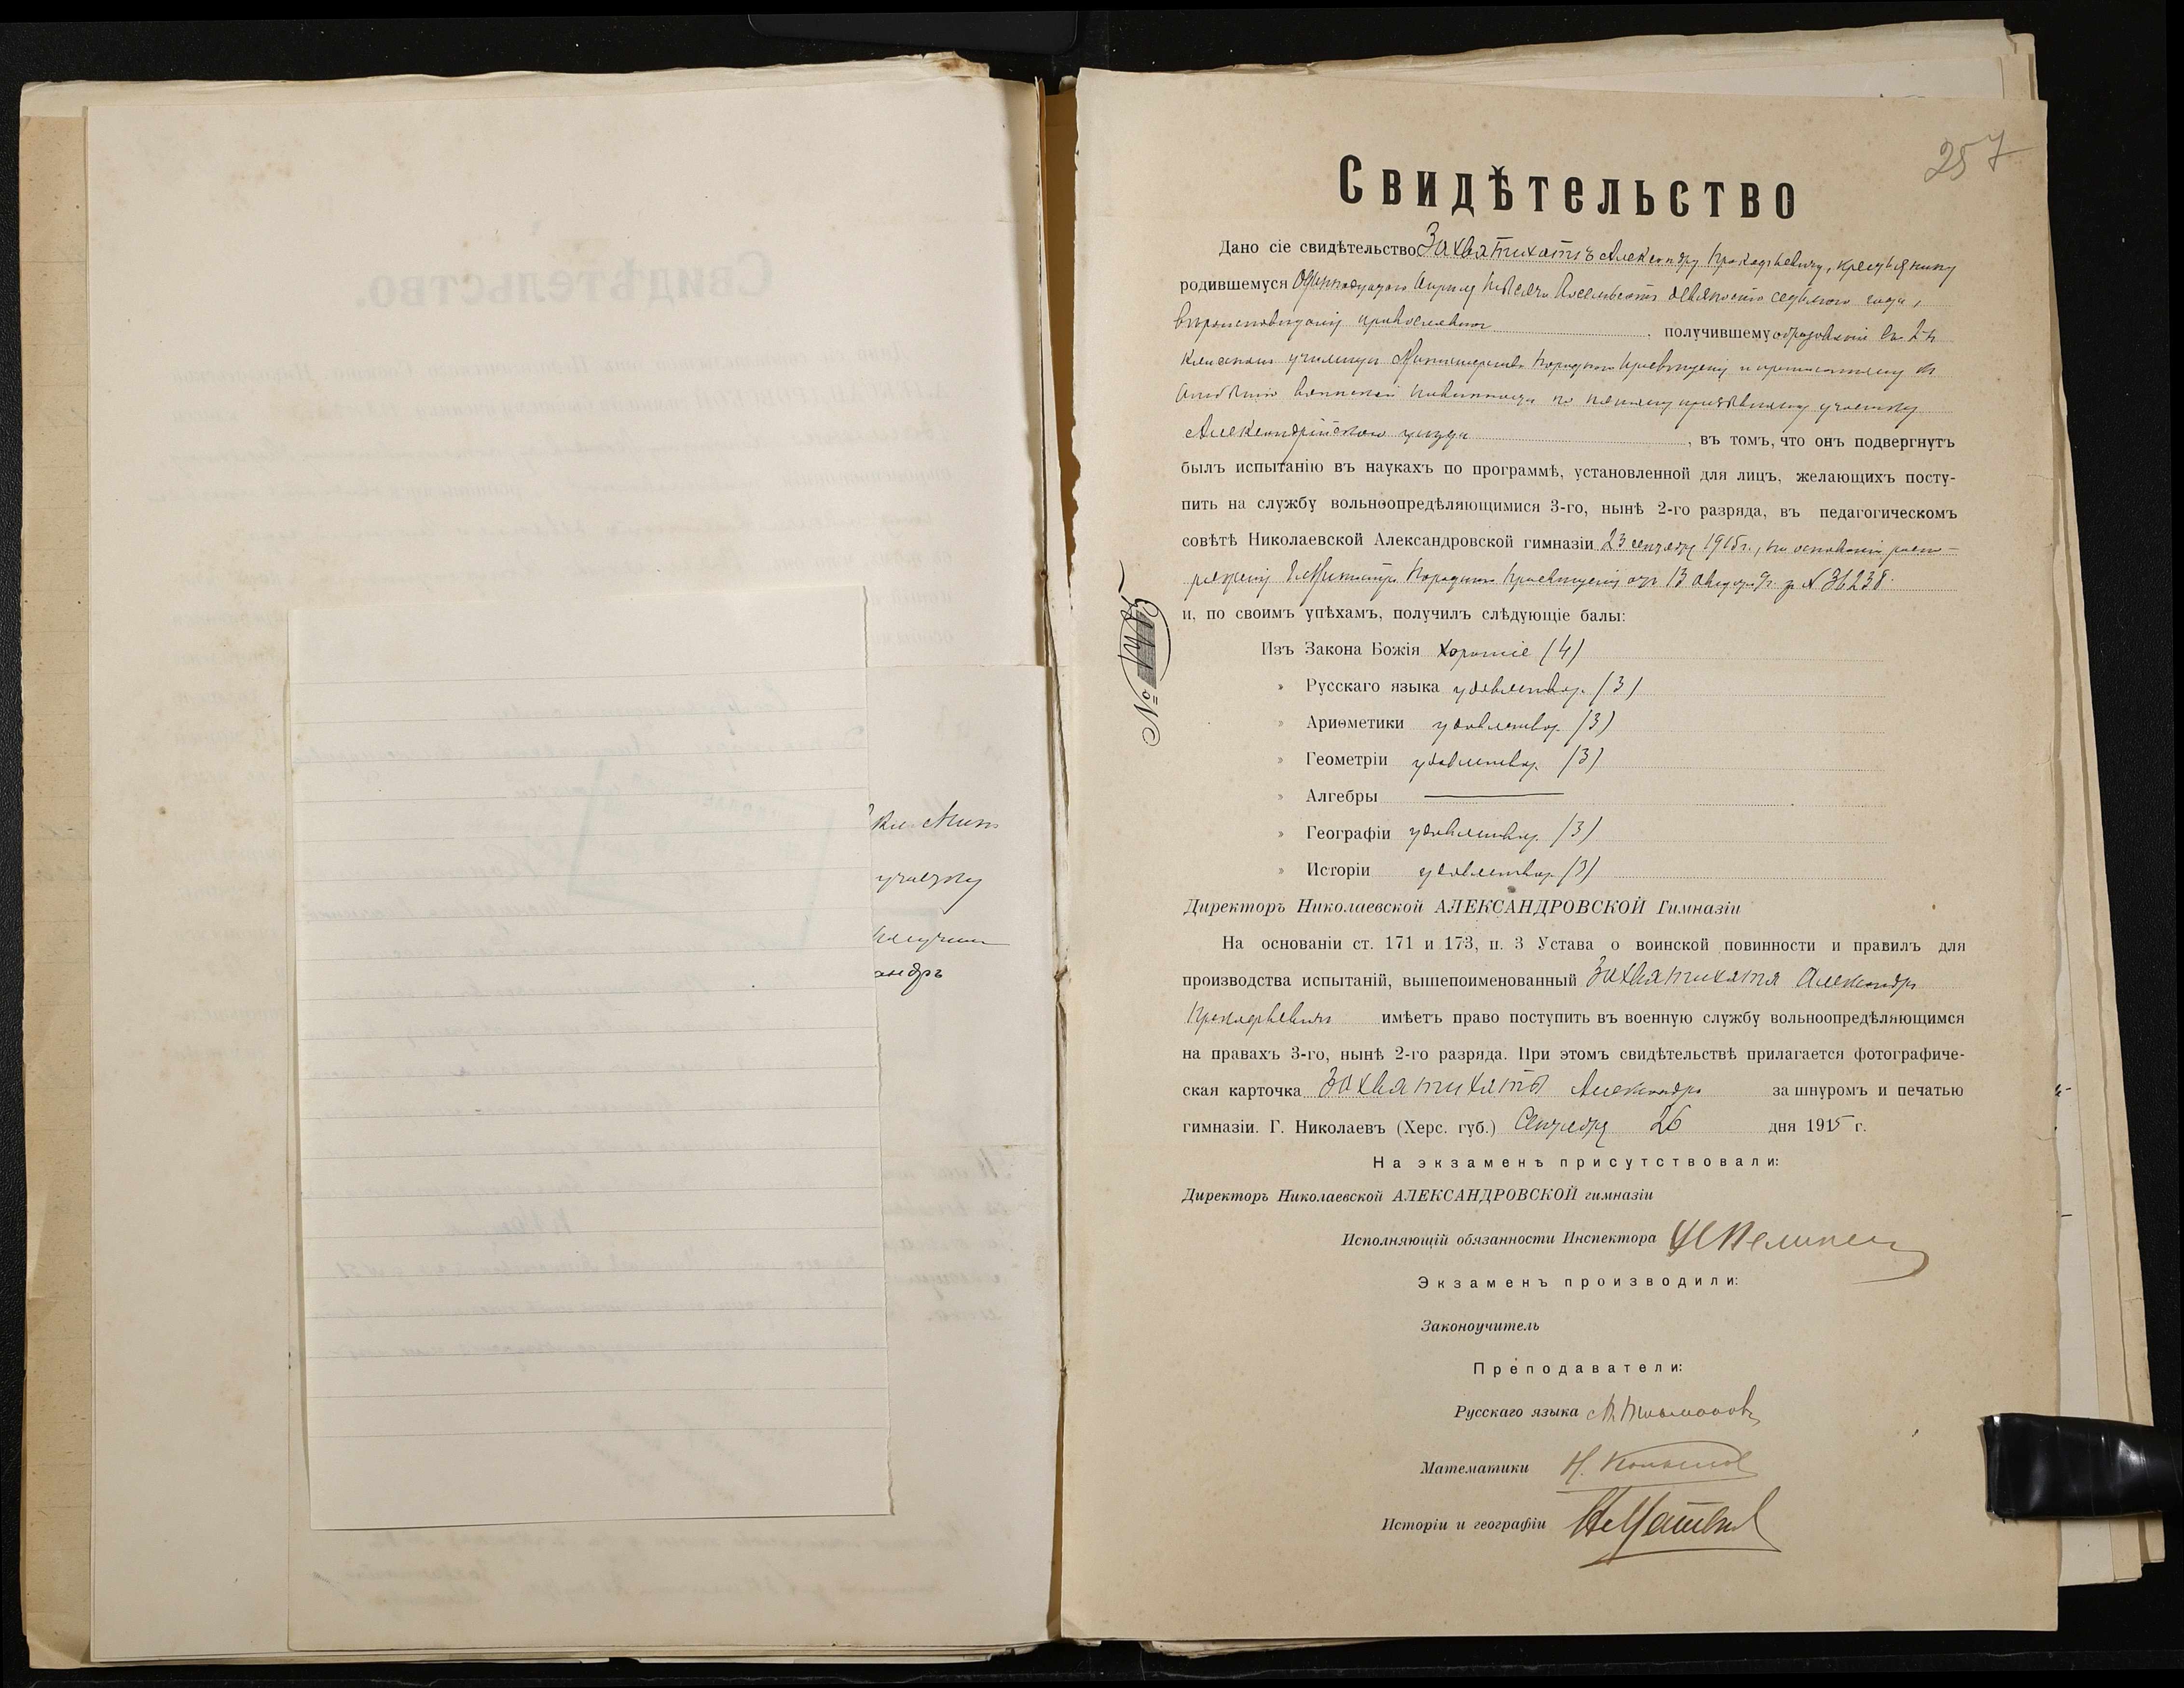 ки Мин
участку
получил
андръ
257
Свидѣтельство
Дано сіе свидѣтельство Захватихатъ Александру Прокофьевичу, крестьянину
родившемуся Одиннадцатаго Апрѣля мѣсяца девяносто седьмого года,
вѣроисповѣданія православнаго, получившему образованіе въ 2-хъ
классномъ училищѣ Министерства Народнаго Просвѣщенія и приписанному къ
отбытію воинской повинности по призывному участку
Александрійскаго уѣзда, въ томъ, что онъ подвергнутъ
былъ испытанію въ наукахъ по программѣ, установленной для лицъ, желающихъ посту-
пить на службу вольноопредѣляющимися 3-го, нынѣ 2-го разряда, въ педагогическомъ
совѣтѣ Николаевской Александровской гимназіи 23 сентября 1915 г., на основаніи распо-
ряженія Г. Министра Народнаго Просвѣщенія отъ 13 за № 36238.
и, по своимъ упѣхамъ, получилъ слѣдующіе балы:
№
Изъ Закона Божія хорошіе (4)
" Русскаго языка удовлетвор. (3)
" Ариѳметики удовлетвор. (3)
" Геометріи удовлетвор. (3)
" Алгебры ———
" Географіи удовлетвор. (3)
" Исторіи удовлетвор. (3)
Директоръ Николаевской АЛЕКСАНДРОВСКОЙ Гимназіи
На основаніи ст. 171 и 173, п. 3 Устава о воинской повинности и правилъ для
производства испытаній, вышепоименованный Захватихата Александръ
Прокофьевичъ имѣетъ право поступить въ военную службу вольноопредѣляющимся
на правахъ 3-го, нынѣ 2-го разряда. При этомъ свидѣтельствѣ прилагается фотографиче-
ская карточка Захватихаты Александра за шнуромъ и печатью
гимназіи. Г. Николаевъ (Херс. губ.) Сентября 26 дня 1915 г.
На экзаменѣ присутствовали:
Директоръ Николаевской АЛЕКСАНДРОВСКОЙ гимназіи
Исполняющій обязанности Инспектора
Экзаменъ производили:
Законоучитель
Преподаватели:
Русскаго языка
Математики Н.
Исторіи и географіи